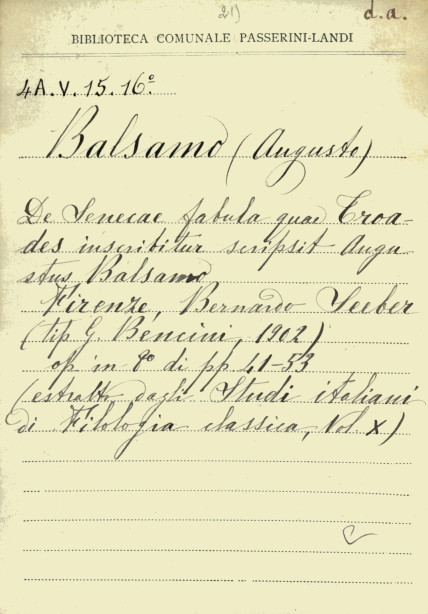 21)
d.a.
BIBLIOTECA COMUNALE PASSERINI-LANDI
4A.V.15.16º
Balsamo (Augusto)
De Senecae fabula quae Troa-
des inscribitur scripsit Augu-
stus Balsamo
Firenze, Bernardo Seeber
(tip G. Bencini, 1902)
op in 8º di pp 41-53
(estratto dagli Studi italiani
di Filologia classica, Vol. X)